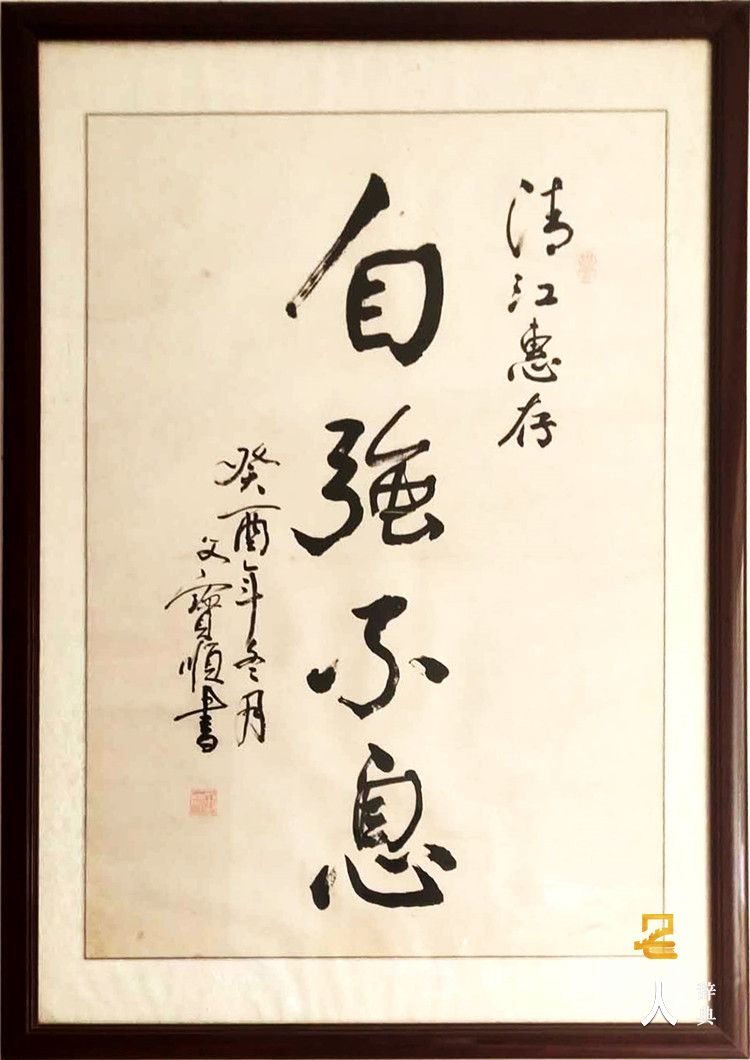 清江惠存
自強不息
癸酉年冬月
父寶順書
名人
辞典